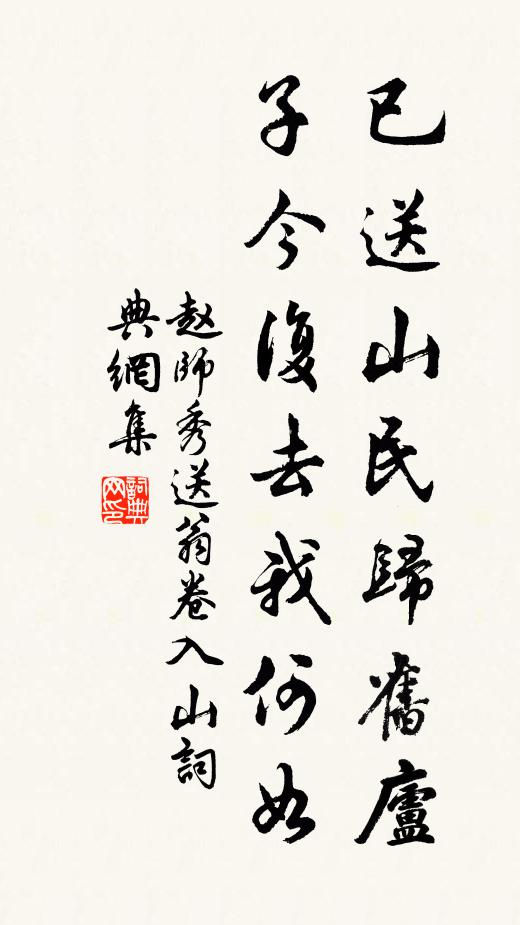 已送山民歸舊廬
子今復去我何如
趙師秀送翁卷入山詞
典網集
詞典
网印